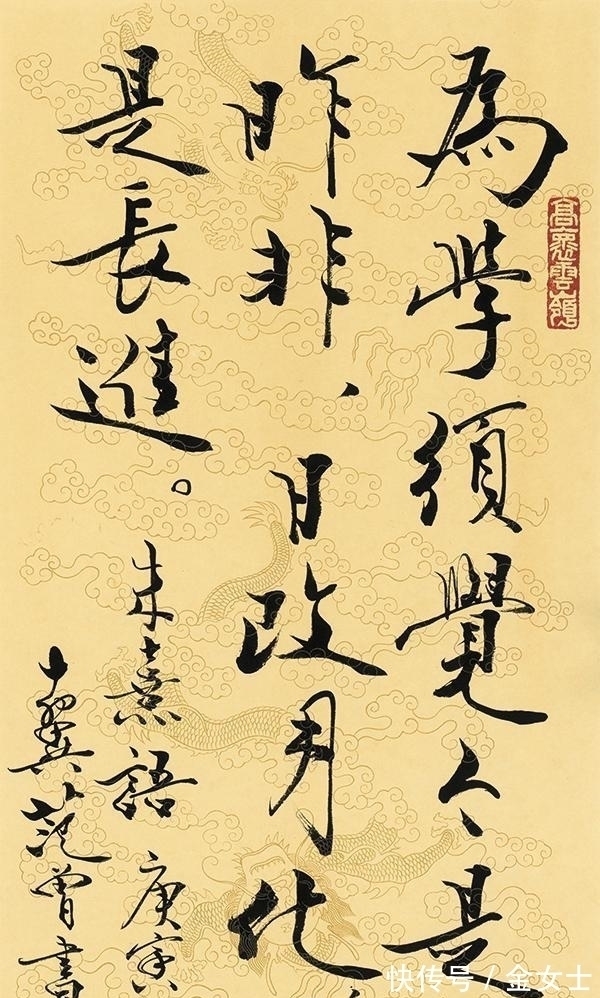 高雲嶺
為學須覺今是
昨非、日改月化、
是長進。
朱熹語 庚寅
十翼范曾書
快传号 / 金女士